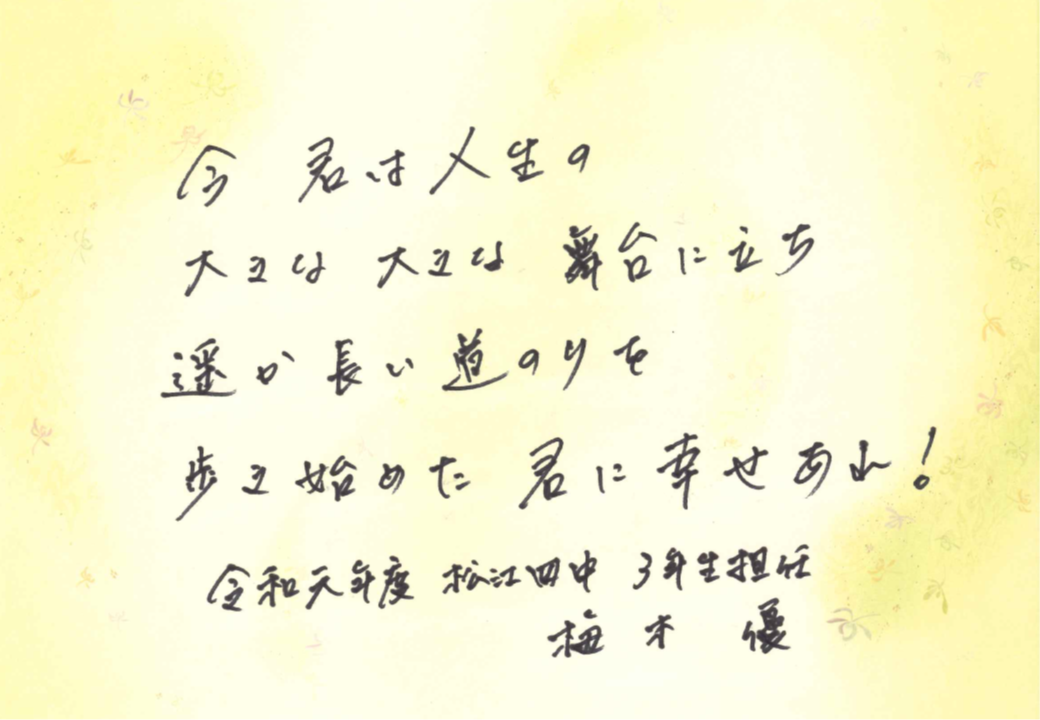 今 君は人生の
大きな 大きな 舞台に立ち
遥か長い道のりを
歩き始めた 君に幸せあれ!
令和元年度 松江四中 3年生担任
梅木 優